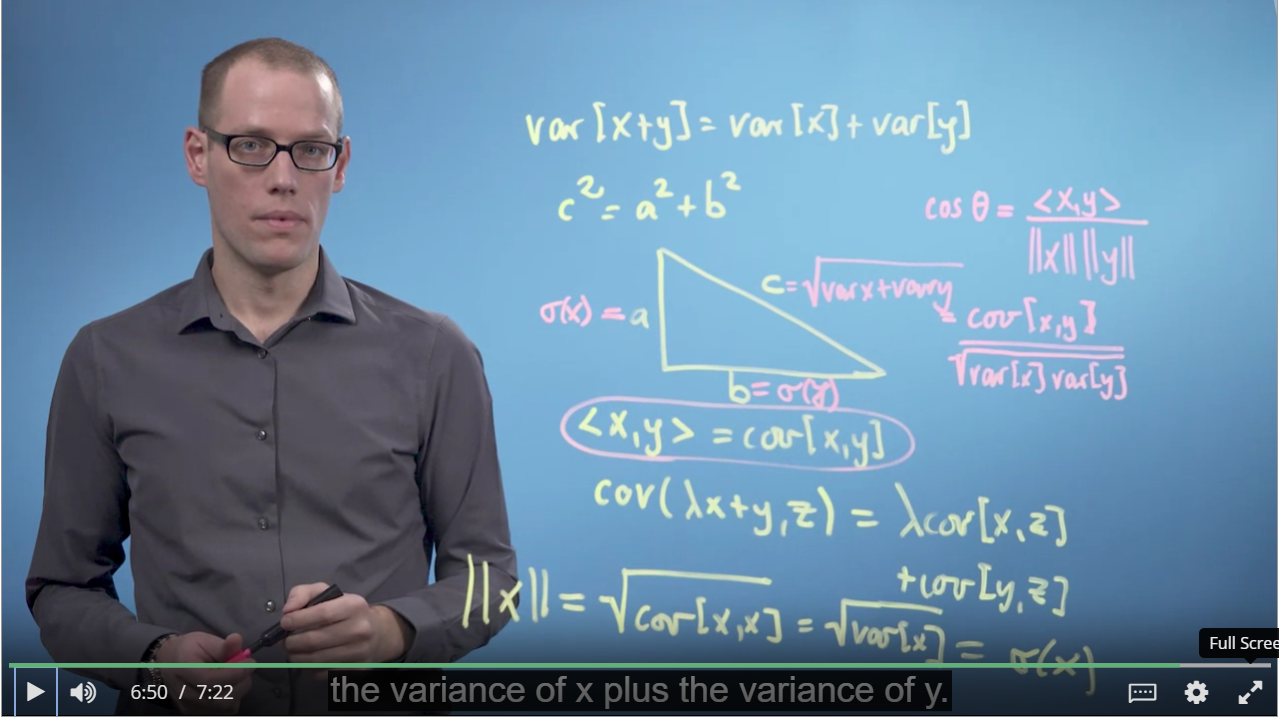 var[x+y] = var[x] + var[y]
c² = a² + b²
cos θ = <x,y>
||x|| ||y||
= cov[x,y]
√var[x] var[y]
c = √varx+vary
σ(x) = a
b = σ(y)
<x,y> = cov[x,y]
cov(λx+y,z) = λcov[x,z]
+cov[y,z]
||x|| = √cov[x,x] = √var[x] = σ(x)
Full Scree
6:50 / 7:22
the variance of x plus the variance of y.